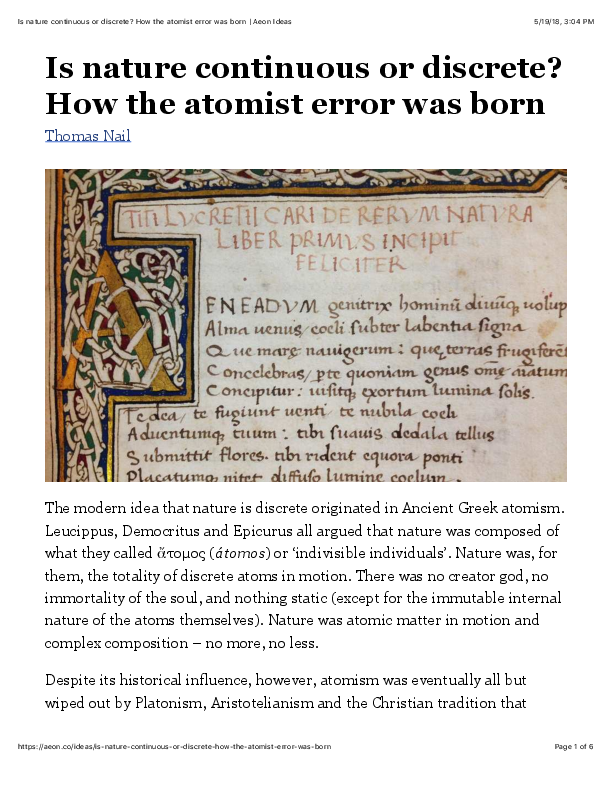 Is nature continuous or discrete? How the atomist error was born | Aeon Ideas
5/19/18, 3:04 PM
Is nature continuous or discrete?
How the atomist error was born
Thomas Nail
TITI LVCRETII CARI DE RERVM NATVRA
LIBER PRIMVS INCIPIT
FELICITER
ENEADVM genitrix hominū diuūq, uolup
Alma uenus, coeli subter labentia signa
Que mare nauigerum: que terras frugiferēt
Concelebras, pte quoniam genus ome aiatum
Concipitur: uisitq, exortum lumina solis.
Te dea, te fugiunt uenti te nubila coeli
Aduentumq, tuum: tibi suauis dedala tellus
Submittit flores. tibi rident equora ponti
Placatumq, nitet diffuso lumine coelum.
The modern idea that nature is discrete originated in Ancient Greek atomism.
Leucippus, Democritus and Epicurus all argued that nature was composed of
what they called ἄτομος (átomos) or ‘indivisible individuals’. Nature was, for
them, the totality of discrete atoms in motion. There was no creator god, no
immortality of the soul, and nothing static (except for the immutable internal
nature of the atoms themselves). Nature was atomic matter in motion and
complex composition – no more, no less.
Despite its historical influence, however, atomism was eventually all but
wiped out by Platonism, Aristotelianism and the Christian tradition that
https://aeon.co/ideas/is-nature-continuous-or-discrete-how-the-atomist-error-was-born
Page 1 of 6